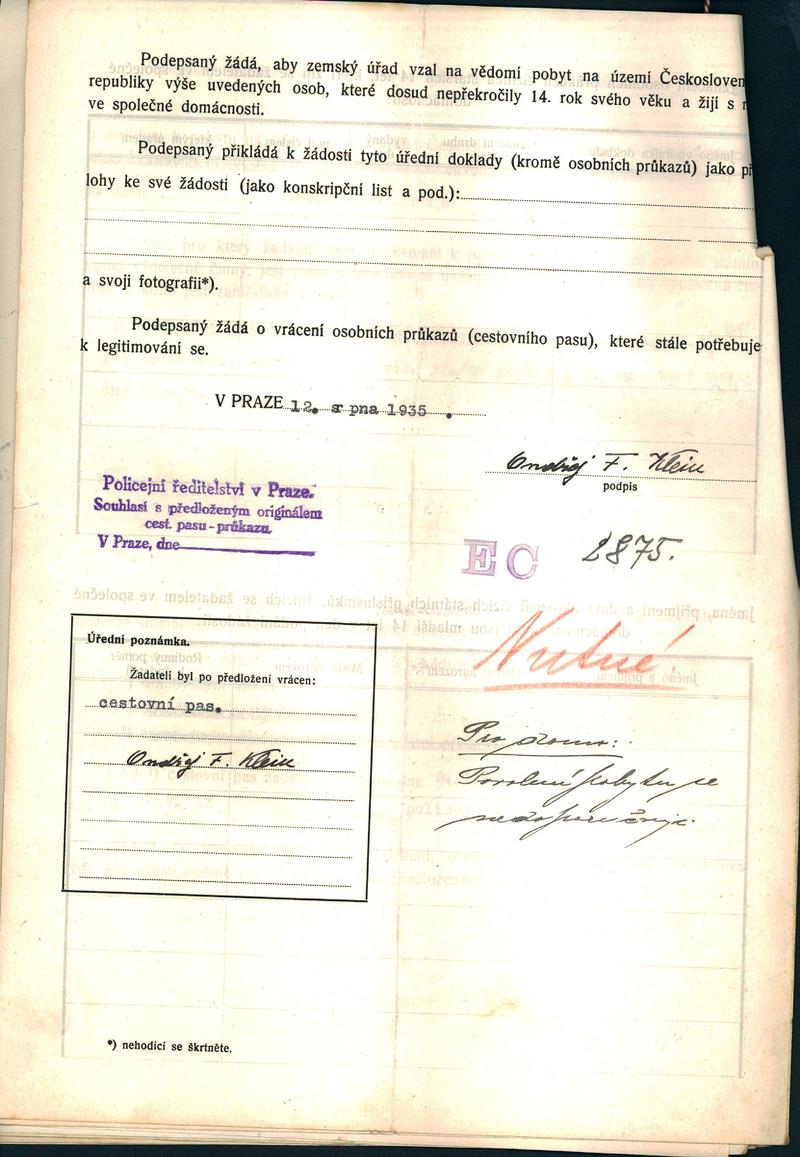 Podepsaný žádá, aby zemský úřad vzal na vědomí pobyt na území Českosloven
republiky výše uvedených osob, které dosud nepřekročily 14. rok svého věku a žijí s
ve společné domácnosti.
Podepsaný přikládá k žádosti tyto úřední doklady (kromě osobních průkazů) jako př
lohy ke své žádosti (jako konskripční list a pod.):
a svoji fotografii*).
Podepsaný žádá o vrácení osobních průkazů (cestovního pasu), které stále potřebuje
k legitimování se.
V PRAZE 12. srpna 1935.
Ondřej F. Klein
podpis
Policejní ředitelství v Praze.
Souhlasí s předloženým originálem
cest. pasu-průkazu.
V Praze, dne
EC 2875.
Nutné!
Úřední poznámka.
Žadateli byl po předložení vrácen:
cestovní pas.
Ondřej F. Klein
Pro domo:
Povolení pobytu se
nedoporučuje.
*) nehodící se škrtněte.